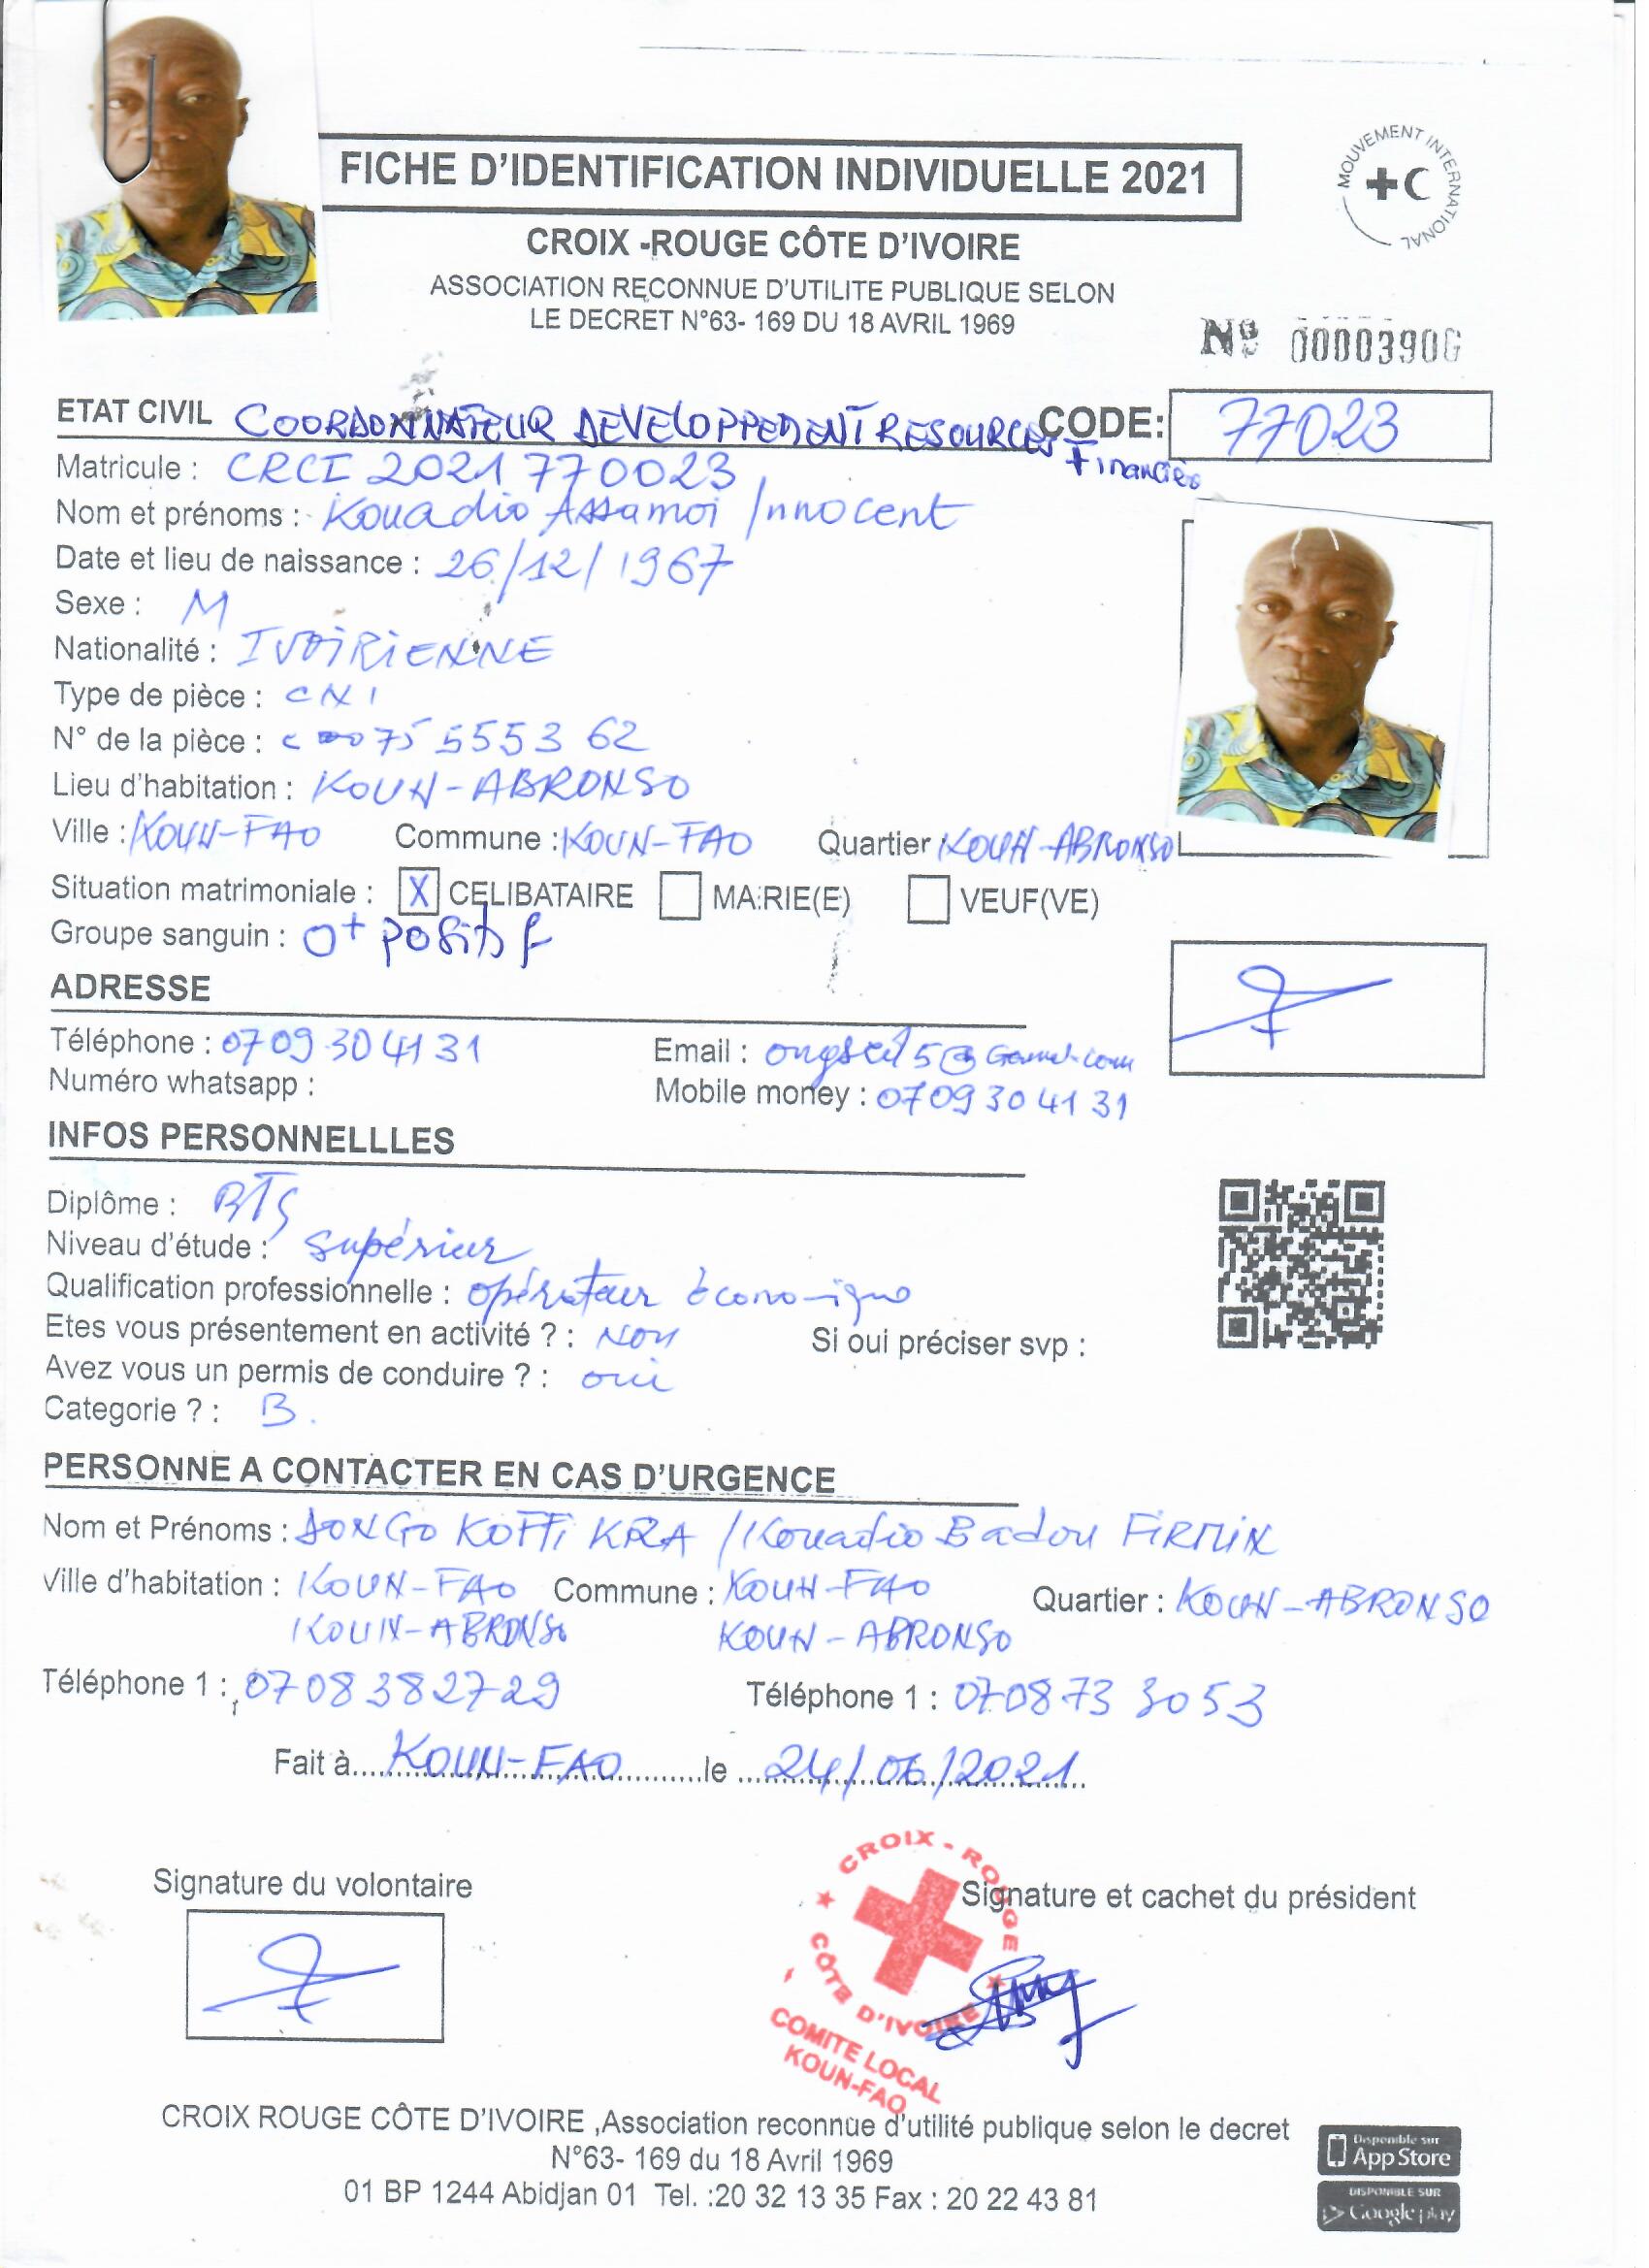 FICHE D'IDENTIFICATION INDIVIDUELLE 2021
MOUVEMENT INTERNATIONAL
CROIX -ROUGE CÔTE D'IVOIRE
ASSOCIATION REÇONNUE D'UTILITE PUBLIQUE SELON
LE DECRET N°63- 169 DU 18 AVRIL 1969
Nº 0000390
ETAT CIVIL COORDONNATEUR DEVELOPPEMENT RESOURCES Financiès
CODE: 77023
Matricule : CRCI 2021 770023
Nom et prénoms : Kouadio Assamoi Innocent
Date et lieu de naissance : 26/12/1967
Sexe : M
Nationalité : IVOIRIENNE
Type de pièce : CNI
N° de la pièce : 75 5553 62
Lieu d'habitation : KOUN-ABRONSO
Ville : KOUN-FAO Commune : KOUN-FAO Quartier : KOUN-ABRONSO
Situation matrimoniale : X CELIBATAIRE MARIE(E) VEUF(VE)
Groupe sanguin : O+ positif
ADRESSE
Téléphone : 07 09 30 41 31 Email :
Numéro whatsapp : Mobile money : 07 09 30 41 31
INFOS PERSONNELLLES
Diplôme : BTS
Niveau d'étude : supérieur
Qualification professionnelle : opérateur économique
Etes vous présentement en activité ? : NON Si oui préciser svp :
Avez vous un permis de conduire ? : oui
Categorie ? : B.
PERSONNE A CONTACTER EN CAS D'URGENCE
Nom et Prénoms : DONGO KOFFI KRA / Kouadio Badou FIRMIN
Ville d'habitation : KOUN-FAO Commune : KOUN-FAO Quartier : KOUN-ABRONSO
KOUN-ABRONSO KOUN-ABRONSO
Téléphone 1 : 07 08 38 27 29 Téléphone 1 : 07 08 73 30 53
Fait à KOUN-FAO le 24/06/2021
Signature du volontaire
Signature et cachet du président
CROIX-ROUGE CÔTE D'IVOIRE
COMITE LOCAL
KOUN-FAO
CROIX ROUGE CÔTE D'IVOIRE ,Association reconnue d'utilité publique selon le decret
N°63- 169 du 18 Avril 1969
01 BP 1244 Abidjan 01 Tel. :20 32 13 35 Fax : 20 22 43 81
Disponible sur
App Store
DISPONIBLE SUR
Google play